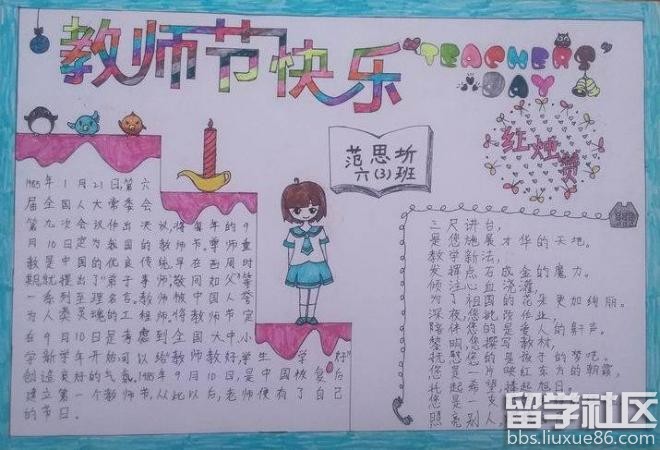 教师节快乐
"TEACHER'S
DAY
红烛赞
范思圻
六(3)班
1985年1月21日,第六
届全国人大常委会
第九次会议作出决议,将每年的9
月10日定为我国的教师节。尊师重
教是中国的优良传统,早在西周时
期就提出了"弟子事师,敬同如父"等
一系列至理名言。教师被中国人誉
为人类灵魂的工程师。将教师节定
在9月10日是考虑到全国大中、小
学新学年开始可以给教师教好,学生学好
创造良好的气氛。1985年9月10日,是中国恢复后
建立第一个教师节,从此以后,老师便有了自己
的节日。
三尺讲台,
是您施展才华的天地。
教学新法,
发挥点石成金的魔力。
倾注心血浇灌,
为了祖国的花朵更加绚丽。
深夜,您批改作业,
陪伴您的是爱人的鼾声。
黎明,您撰写教材,
抚慰您的是孩子的梦呓。
您是一片映红东方的朝霞,
托起希望,捧起旭日。
您是一支
照亮别人,
留学社区
bbs.liuxue86.com